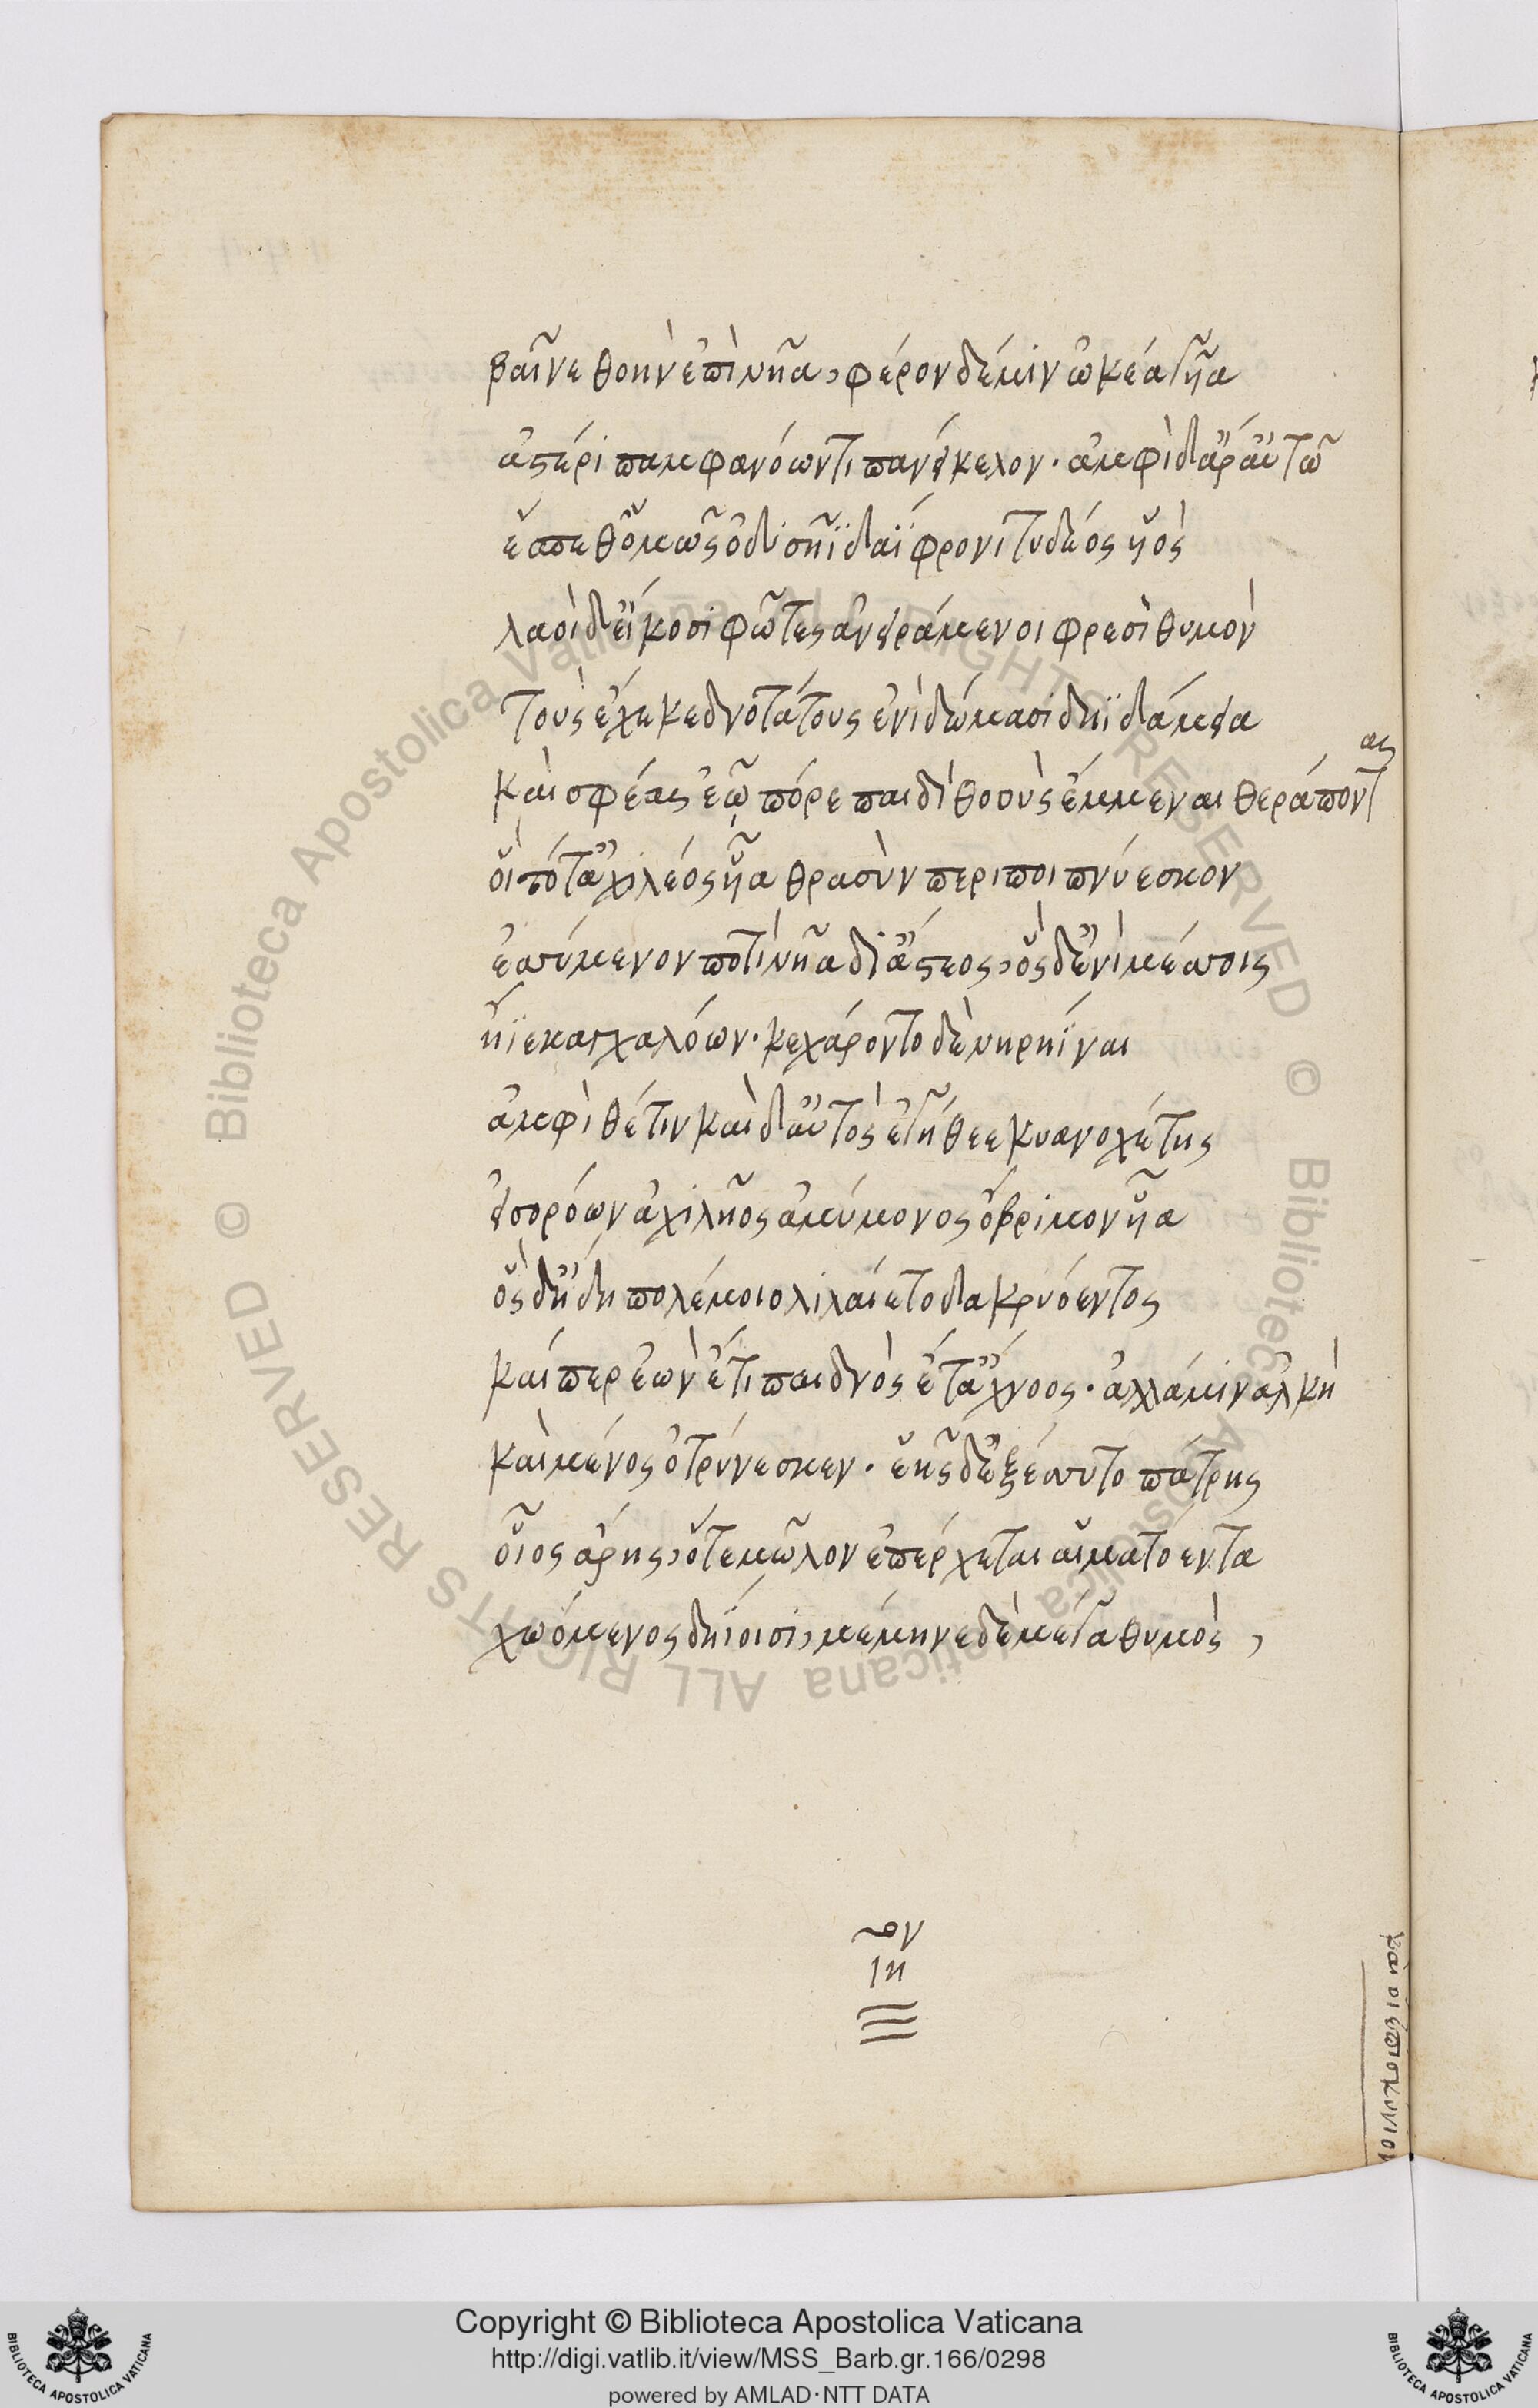 βαῖνε θοὴν ἐπὶ νῆα, φέρον δέ μιν ὠκέα γυῖα
ἀστέρι παμφανόωντι πανείκελον· ἀμφὶ δ' ἄρ' αὐτῶ
ἕσπεθ' ὅμως ὀδυσῆϊ δαΐφρονι τυδέος υἱὸς
λαοὶ δ' εἴκοσι φῶτες ἀειράμενοι φρεσὶ θυμὸν
τοὺς ἔχε κεδνοτάτους ἐνὶ δώμασι δηϊδάμεια
καὶ σφέας ἑῷ πόρε παιδὶ θοοὺς ἔμμεναι θεράποντας
οἳ τότ' ἀχιλέος υἷα θρασὺν περιποιπνύεσκον
ἐσσύμενον ποτὶ νῆα δι' ἄστεος, ὃς δ' ἐνὶ μέσσοις
ἤϊε καγχαλόων· κεχάροντο δὲ νηρηΐναι
ἀμφὶ θέτιν καὶ δ' αὐτὸς ἐγήθεε κυανοχέτης
εἰσορόων ἀχιλῆος ἀμύμονος ὄβριμον υἷα
ὃς δ' ἤδη πολέμοιο λιλαίετο δακρυόεντος
καί περ ἐὼν ἔτι παιδνὸς ἔτ' ἄχνοος· ἀλλά μιν ἀλκὴ
καὶ μένος ὀτρύνεσκεν· ἑῆς δ' ἐξέσσυτο πάτρης
οἷος ἄρης, ὅτε μῶλον ἐπέρχεται αἱματόεντα
χωόμενος δηΐοισι, μέμηνε δὲ μέγα θυμὸς,
Copyright © Biblioteca Apostolica Vaticana
http://digi.vatlib.it/view/MSS_Barb.gr.166/0298
powered by AMLAD·NTT DATA